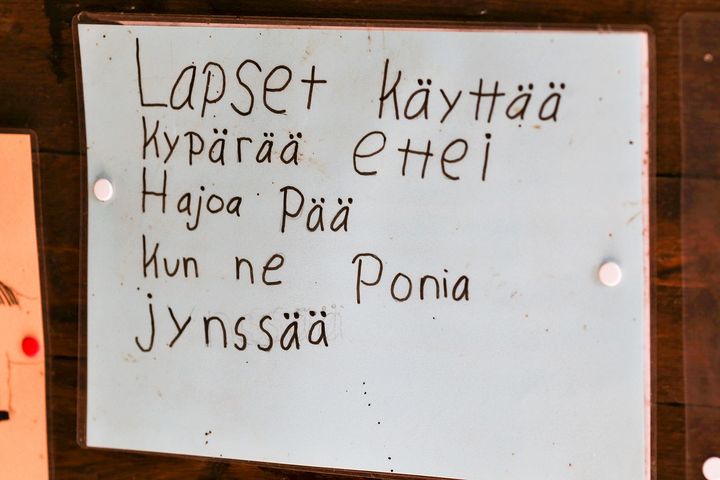 Lapset käyttää
Kypärää ettei
Hajoa Pää
Kun ne Ponia
jynssää